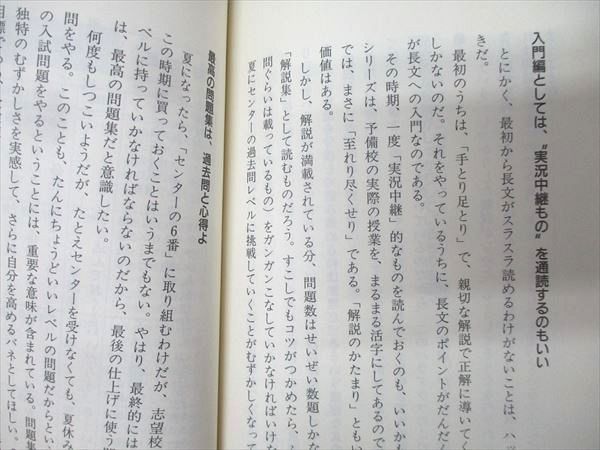 入門編としては、〝実況中継もの〟を通読するのもいい
とにかく、最初から長文がスラスラ読めるわけがないことは、ハッ
きだ。
最初のうちは、「手とり足とり」で、親切な解説で正解に導いてく
しかないのだ。それをやっているうちに、長文のポイントがだんだん
が長文への入門なのである。
その時期、一度「実況中継」的なものを読んでおくのも、いいかも
シリーズは、予備校の実際の授業を、まるまる活字にしてあるので
では、まさに「至れり尽くせり」である。「解説のかたまり」ともい
価値はある。
しかし、解説が満載されている分、問題数はせいぜい数題しかな
「解説集」として読むものだろう。すこしでもコツがつかめたら、
問ぐらいは載っているもの）をガンガンこなしていかなければいけな
夏にセンターの過去問レベルに挑戦していくことがむずかしくなって
最高の問題集は、過去問と心得よ
夏になったら、「センターの6番」に取り組むわけだが、志望校
この時期に買っておくことはいうまでもない。やはり、最終的には
ベルに持っていかなければならないのだから、最後の仕上げに使う
は、最高の問題集だと意識したい。
何度もしつこいようだが、たとえセンターを受けなくても、夏休み
問をやる。このことも、たんにちょうどいいレベルの問題だからとい
の入試問題をやるということには、重要な意味が含まれている。問題集
独特のむずかしさを実感して、さらに自分を高めるバネとしてほしい。